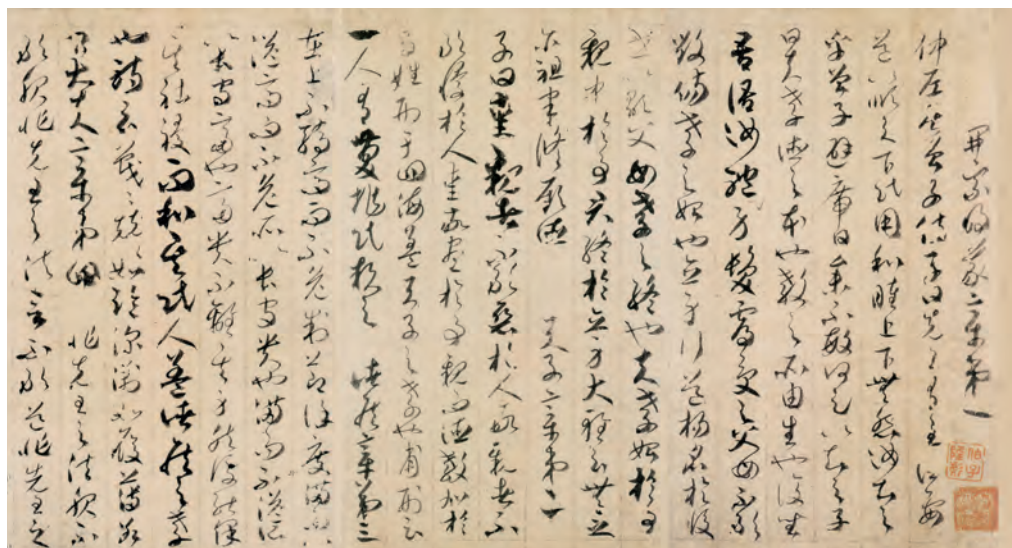 開宗明義章第一
仲尼居曾子侍子曰先王有至德要
道以順天下民用和睦上下無怨汝知之
乎曾子避席曰參不敏何足以知之子
曰夫孝德之本也教之所由生也復坐
吾語汝體身髮膚受之父母不敢
毀傷孝之始也立身行道揚名於後
世以顯父母孝之終也夫孝始於事
親中於事君終於立身大雅云無念
尒祖聿脩厥德 天子章第二
子曰愛親者不敢惡於人敬親者不
敢慢於人愛敬盡於事親而德教加於
百姓刑于四海蓋天子之孝也甫刑云
一人有慶兆民賴之 諸侯章第三
在上不驕高而不危制節謹度滿而不
溢高而不危所以長守貴也滿而不溢所
以長守富也富貴不離其身然後能保
其社稷而和其民人蓋諸侯之孝
也詩云戰戰兢兢如臨深淵如履薄冰
卿大夫章第四 非先王之法服不
敢服非先王之法言不敢道非先王之